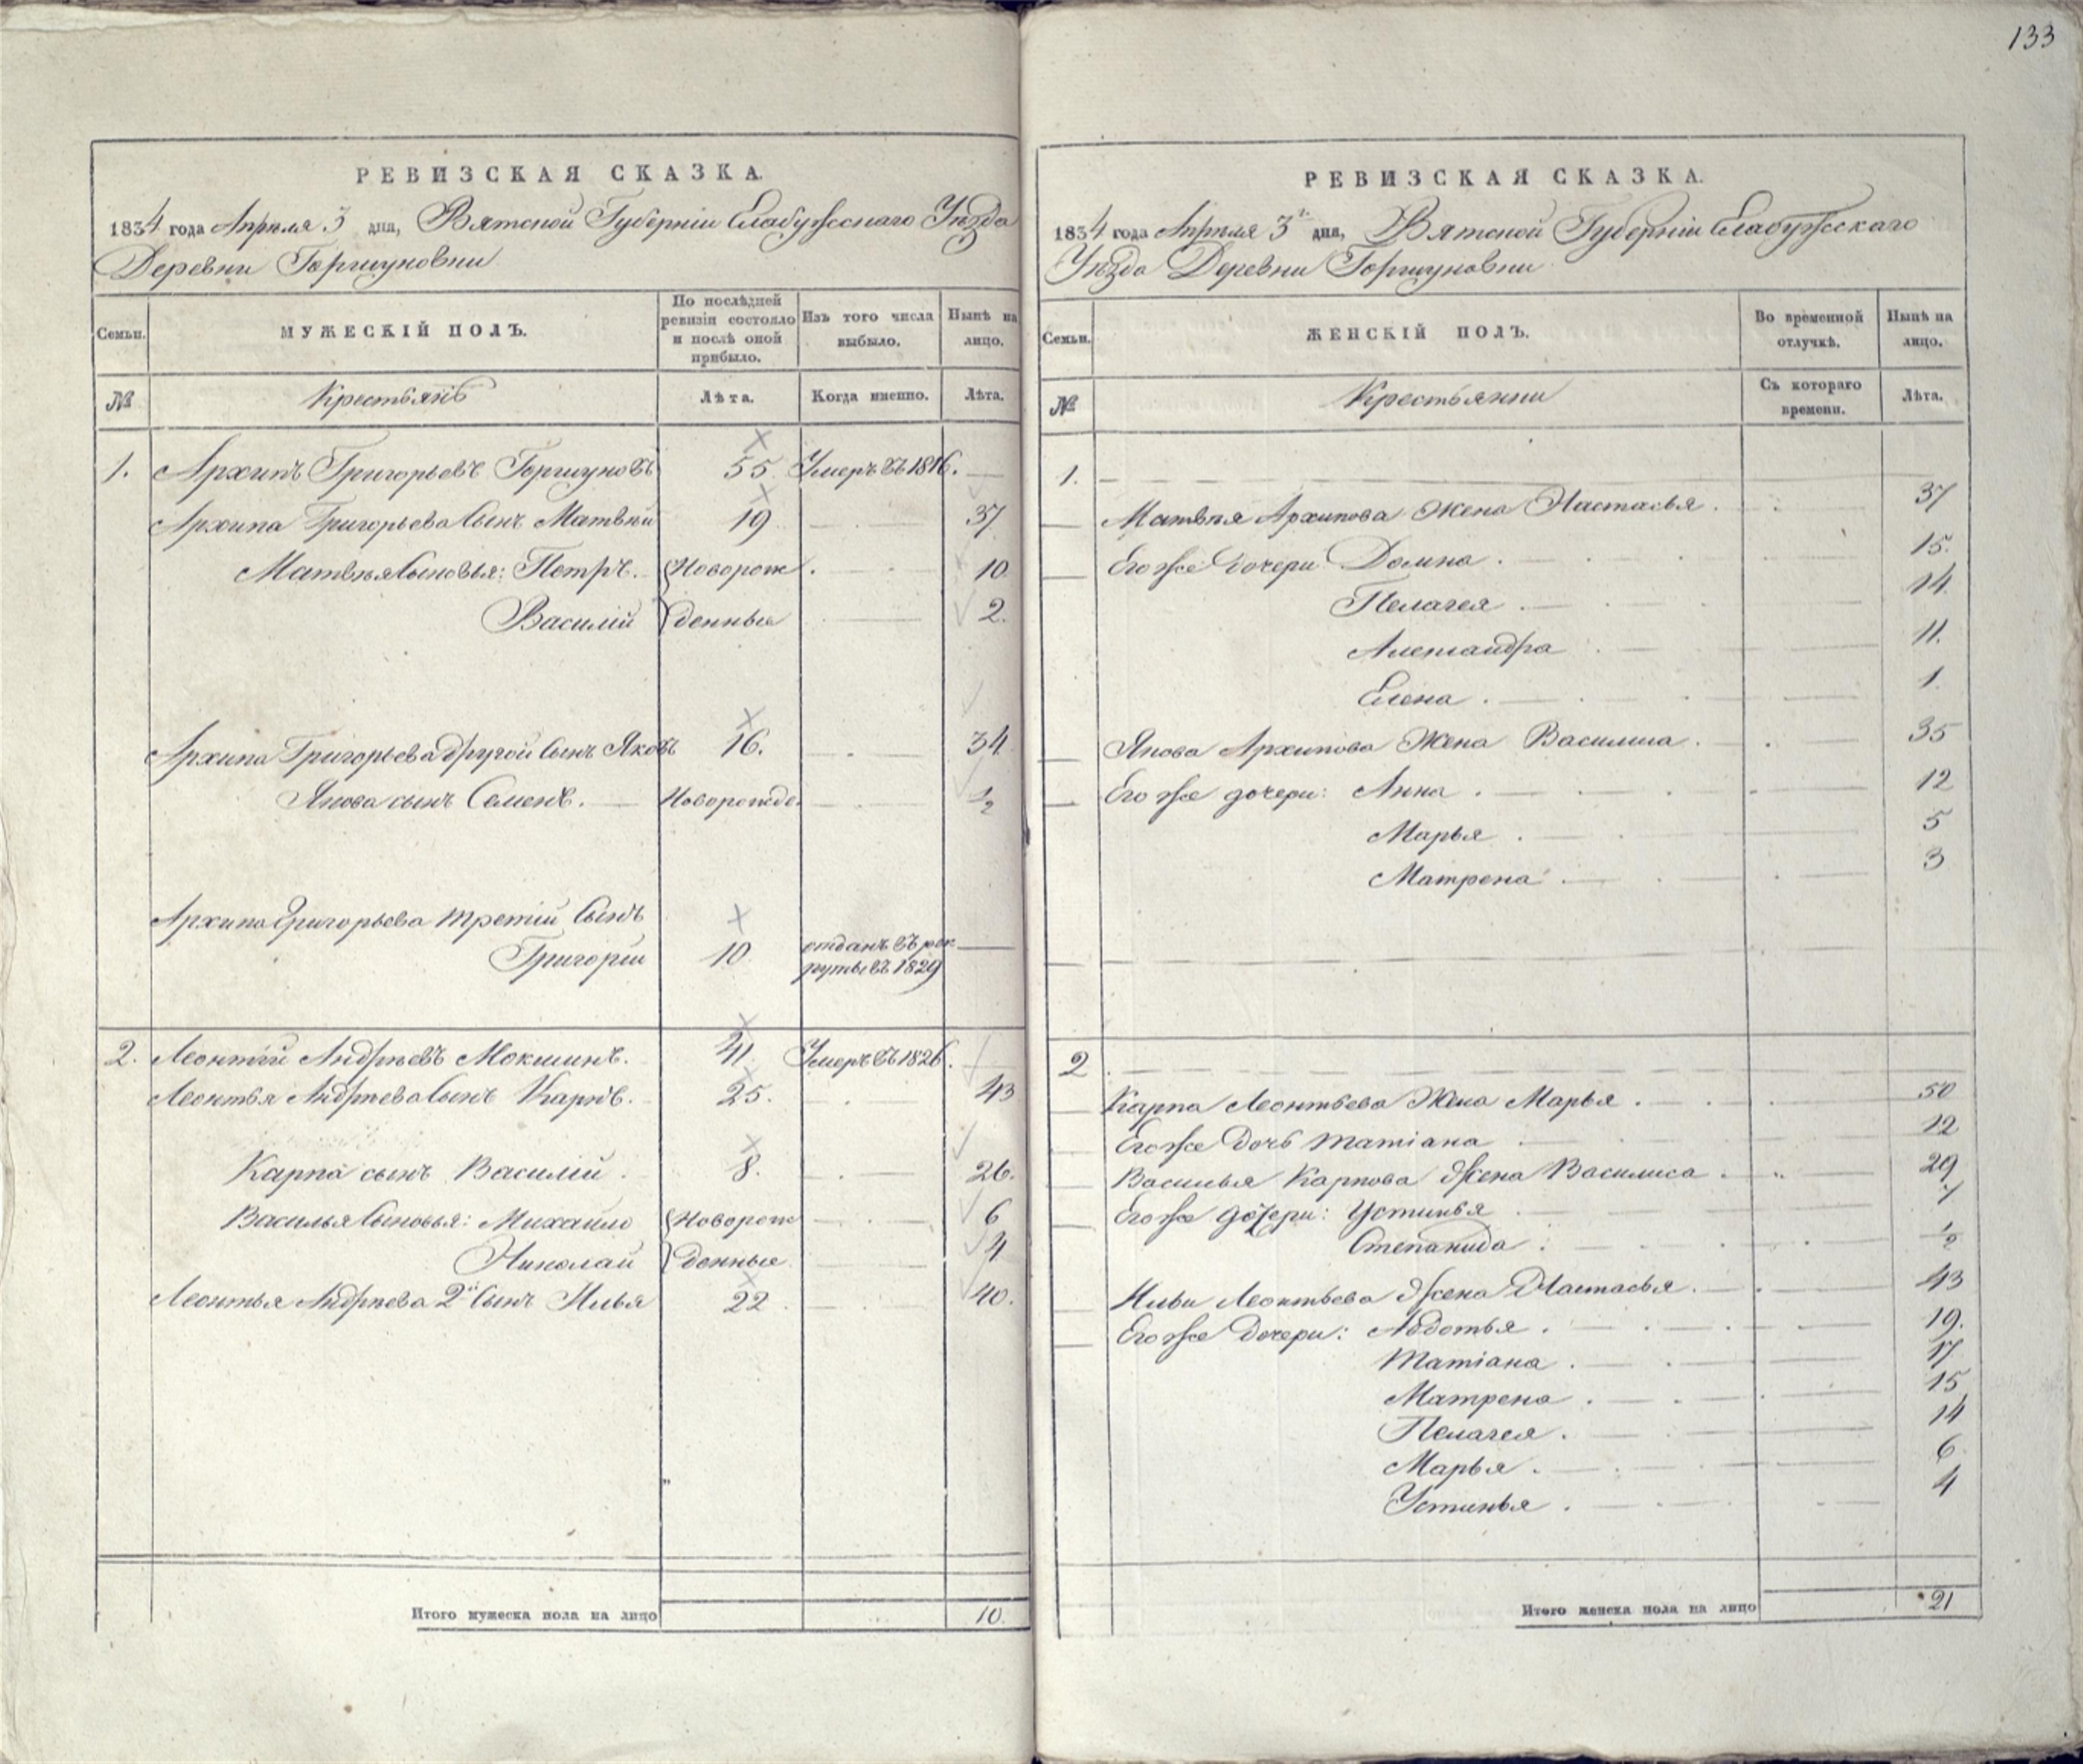 133
РЕВИЗСКАЯ СКАЗКА.
1834 года Апреля 3 дня, Вятской Губернiи Елабужскаго Уѣзда
Деревни Горшуновки
Семьи. МУЖЕСКIЙ ПОЛЪ. По послѣдней ревизiи состояло и послѣ оной прибыло. Изъ того числа выбыло. Нынѣ на лицо.
№ Крестьянъ Лѣта. Когда именно. Лѣта.
1. Архипъ Григорьевъ Горшуновъ 55 Умеръ въ 1816.
Архипа Григорьева Сынъ Матвѣй 19 37
Матвѣя Сыновья: Петръ. Новорож 10
Василiй денные 2.
Архипа Григорьева другой Сынъ Яковъ 16. 34
Якова сынъ Семенъ. Новорожде. 1/2
Архипа Григорьева третiй Сынъ
Григорiй 10 отданъ въ рек
руты въ 1829
2. Леонтiй Андрѣевъ Мокшинъ. 41 Умеръ въ 1826.
Леонтья Андрѣева Сынъ Карпъ. 25. 43
Карпа сынъ Василiй. 8. 26.
Василья Сыновья: Михайло Новорож 6
Николай денные 4
Леонтья Андрѣева 2й Сынъ Илья 22 40.
Итого мужеска пола на лицо 10.
РЕВИЗСКАЯ СКАЗКА.
1834 года Апреля 3го дня, Вятской Губернiи Елабужскаго
Уѣзда Деревни Горшуновки
Семьи. ЖЕНСКIЙ ПОЛЪ. Во временной отлучкѣ. Нынѣ на лицо.
№ Крестьянки Съ котораго времени. Лѣта.
1.
Матвѣя Архипова Жена Настасья. 37
Его же Дочери Домна. 15.
Пелагея. 14.
Александра 11.
Елена. 1.
Якова Архипова Жена Василиса. 35
Его же дочери: Анна. 12
Марья. 5
Матрена. 3
2
Карпа Леонтьева Жена Марья. 50
Его же Дочь Татiана 12
Василья Карпова Жена Василиса. 29
Его же дочери: Устинья 7
Степанида. 1/2
Ильи Леонтьева Жена Настасья. 43
Его же Дочери: Авдотья. 19.
Татiана. 17
Матрена. 15
Пелагея. 14
Марья. 6
Устинья. 4
Итого женска пола на лицо 21